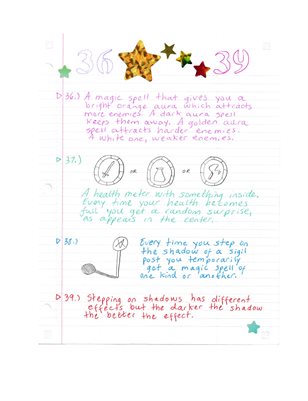 36 39
36.) A magic spell that gives you a
bright orange aura which attracts
more enemies. A dark aura spell
keeps them away. A golden aura
spell attracts harder enemies.
A white one, weaker enemies.
37.)
OR OR
A health meter with something inside,
Every time your health becomes
full you get a random surprise,
as appears in the center.
38.)
Every time you step on
the shadow of a sigil
post you temporarily
got a magic spell of
one kind or another.
39.) Stepping on shadows has different
effects but the darker the shadow
the better the effect.